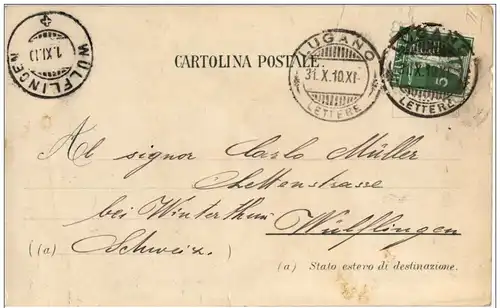 WÜLFLINGEN
1.XI.10
CARTOLINA POSTALE
LUGANO
31.X.10.XI
LETTERE
LETTERE
5
Al signor Carlo Müller
bei Winterthur Wülflingen
(a) Schweiz.)
(a) Stato estero di destinazione.